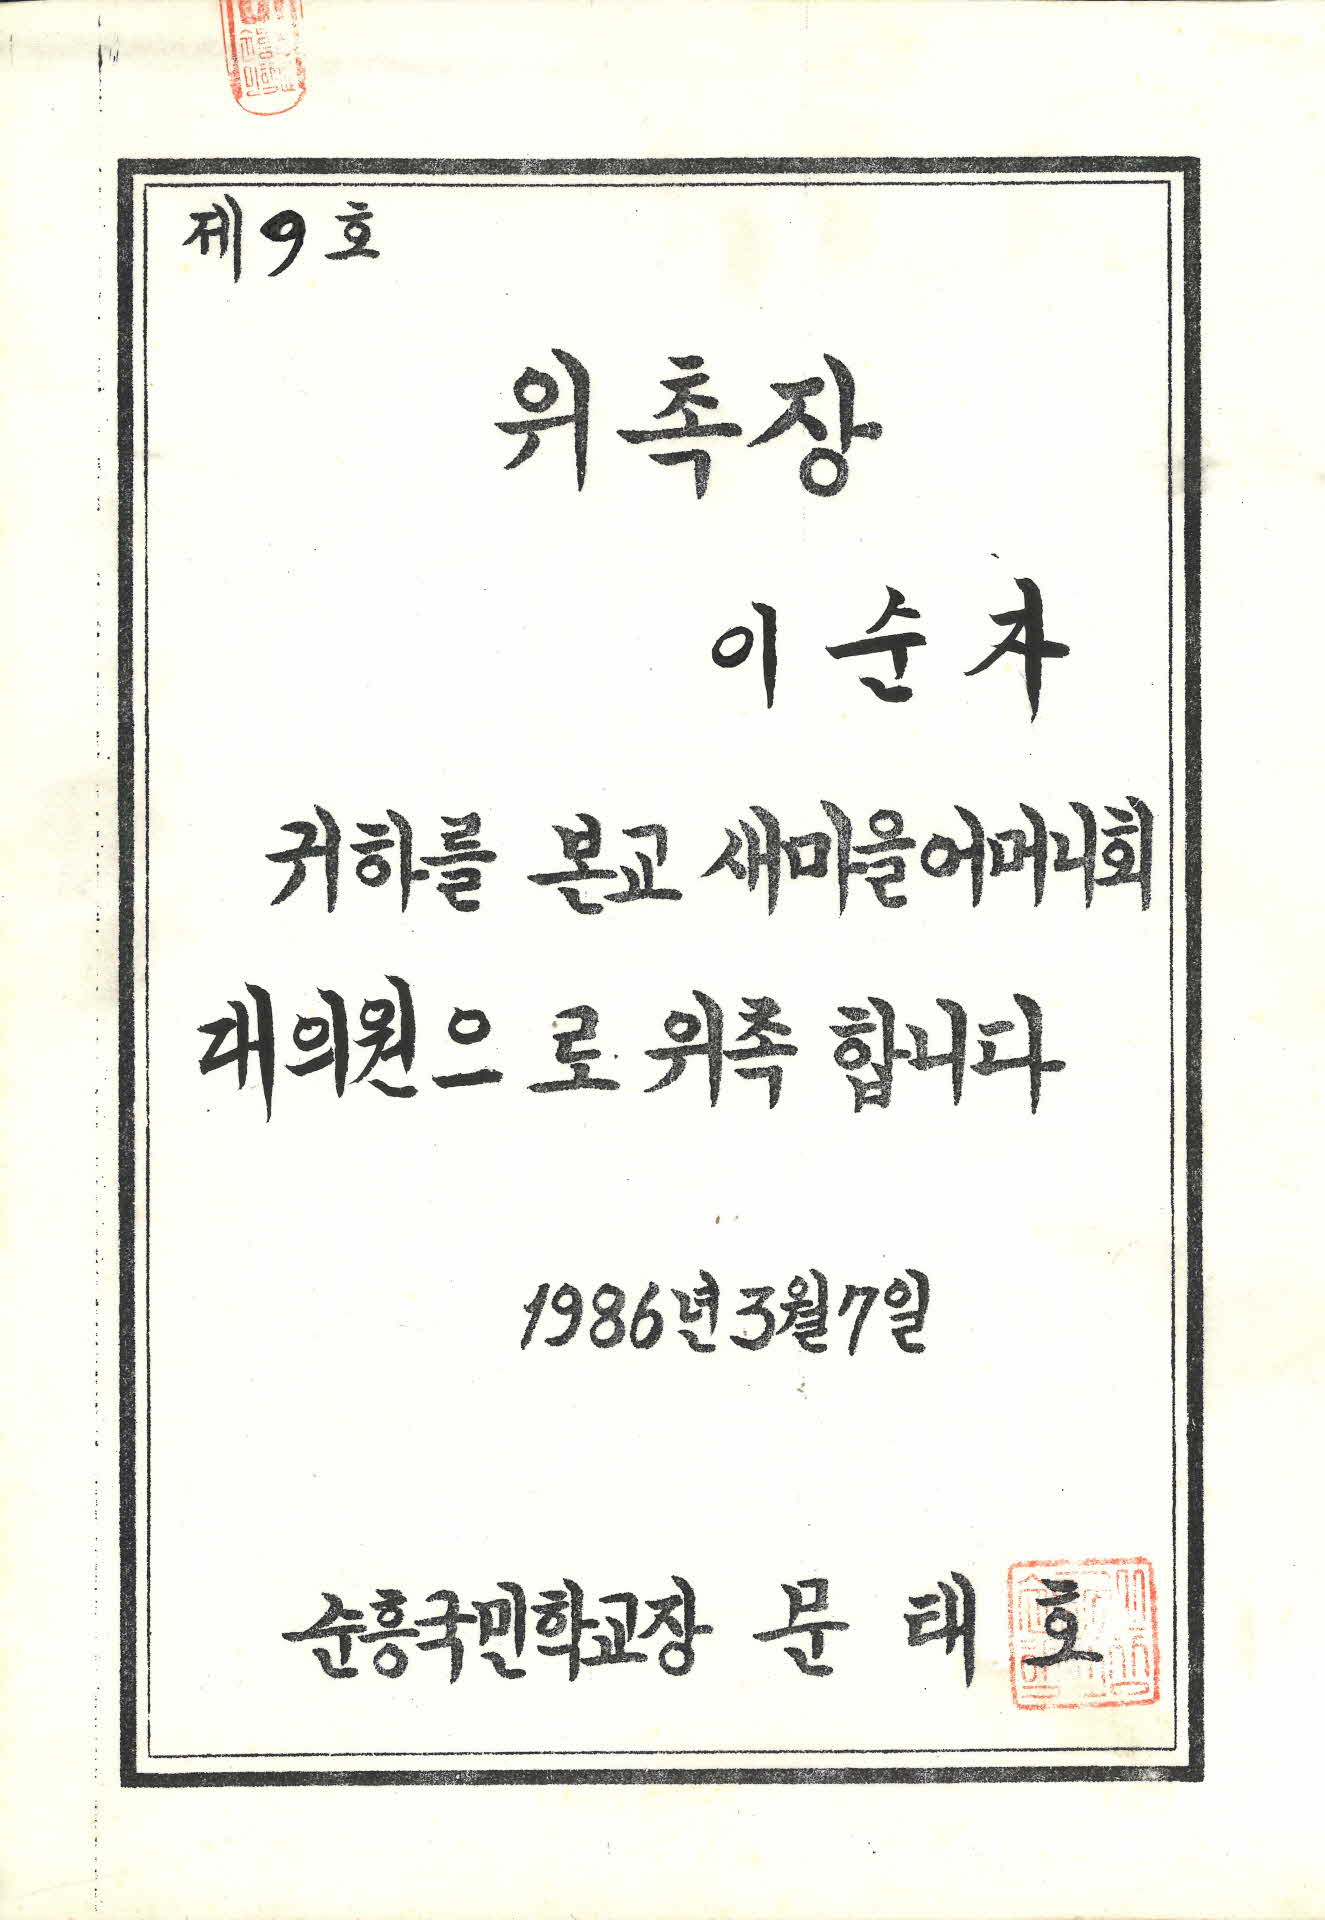 제9호
위촉장
이순자
귀하를 본교 새마을어머니회
대의원으로 위촉 합니다
1986년 3월 7일
순흥국민학교장 문태호